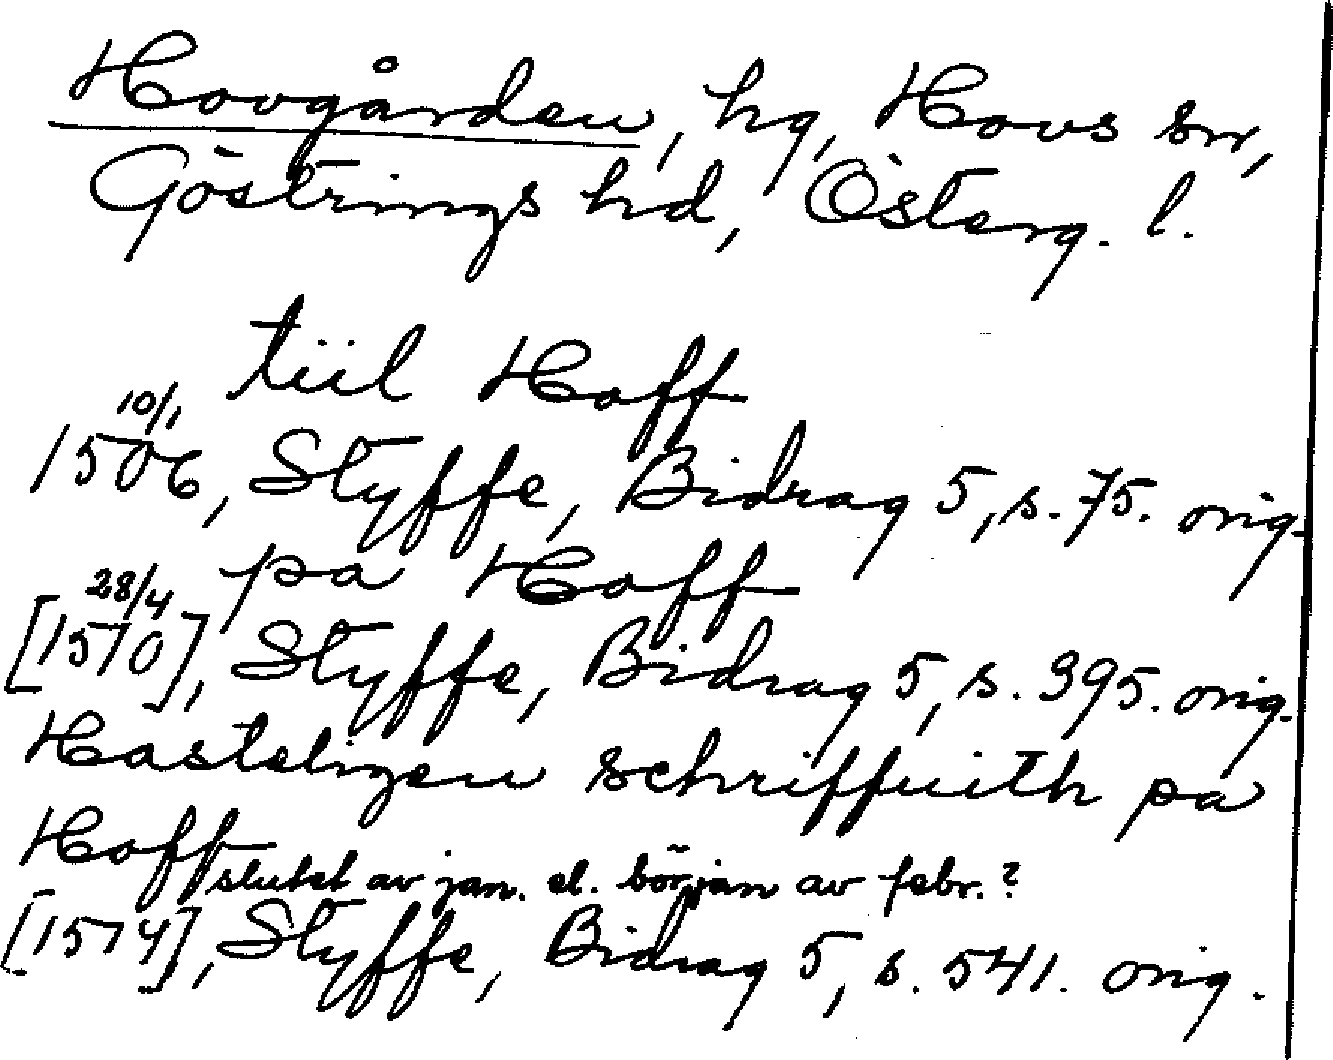 Hovgården, hg, Hovs sn,
Göstrings hd, Österg. l.
tiil Hoff
10/1
1506, Styffe, Bidrag 5, s. 75. orig.
pa Hoff
28/4
[1510], Styffe, Bidrag 5, s. 395. orig.
Hasteligen schriffuith pa
Hoff
slutet av jan. el. början av febr.?
[1514], Styffe, Bidrag 5, s. 541. orig.